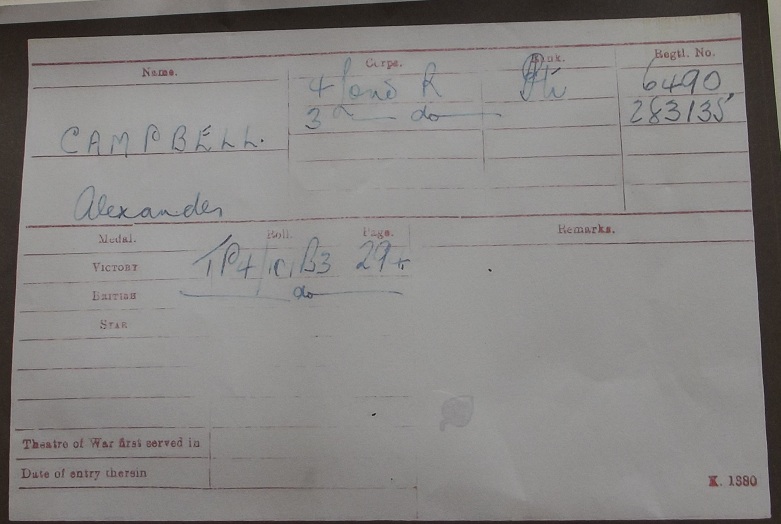 Name. Corps. Rank. Regtl. No.
4/Lond R Pte 6490
3 do 283135
CAMPBELL.
Alexander
Medal. Roll. Page. Remarks.
VICTORY B3
BRITISH do
STAR
Theatre of War first served in
Date of entry therein
K. 1380